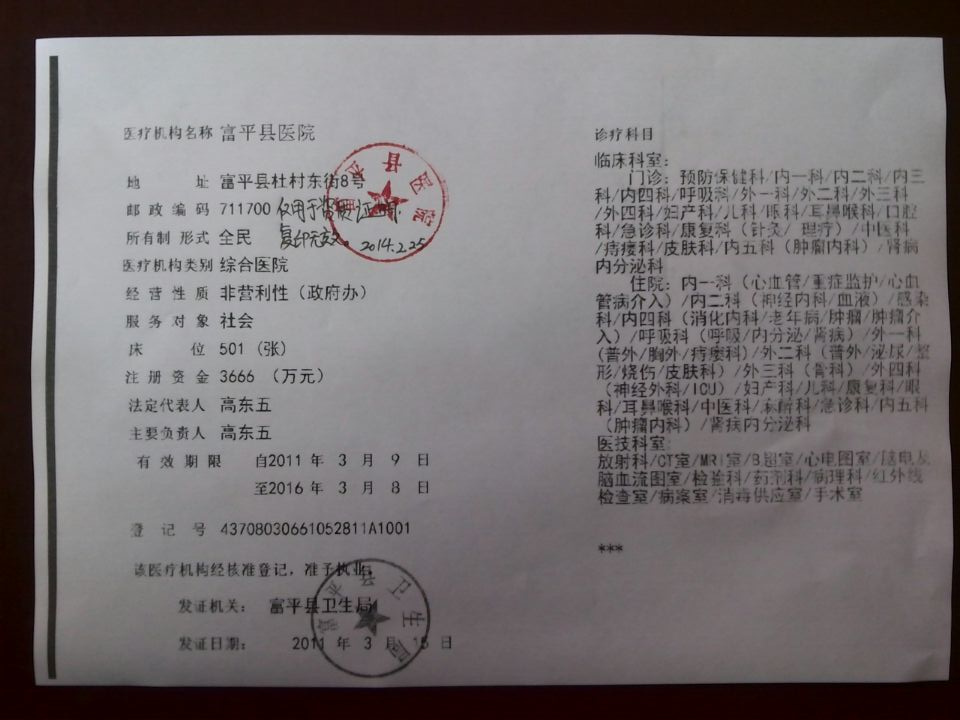 医疗机构名称 富平县医院
地 址 富平县杜村东街8号
邮政编码 711700 仅用于资质证明
所有制形式 全民 复印无效。2014.2.25
医疗机构类别 综合医院
经营性质 非营利性（政府办）
服务对象 社会
床 位 501（张）
注册资金 3666 （万元）
法定代表人 高东五
主要负责人 高东五
有效期限 自2011 年 3 月 9 日
至2016 年 3 月 8 日
登记号 43708030661052811A1001
该医疗机构经核准登记，准予执业。
发证机关： 富平县卫生局
发证日期： 2011 年 3 月 15 日
富平县医院
富平县卫生局
诊疗科目
临床科室：
门诊：预防保健科/内一科/内二科/内三
科/内四科/呼吸科/外一科/外二科/外三科
/外四科/妇产科/儿科/眼科/耳鼻喉科/口腔
科/急诊科/康复科（针灸/ 理疗）/中医科
/痔瘘科/皮肤科/内五科（肿瘤内科）/肾病
内分泌科
住院：内一科（心血管/重症监护/心血
管病介入）/内二科（神经内科/血液）/感染
科/内四科（消化内科/老年病/肿瘤/肿瘤介
入）/呼吸科（呼吸/内分泌/肾病）/外一科
(普外/胸外/痔瘘科）/外二科（普外/泌尿/整
形/烧伤/皮肤科）/外三科（骨科）/外四科
（神经外科/ICU）/妇产科/儿科/康复科/眼
科/耳鼻喉科/中医科/麻醉科/急诊科/内五科
（肿瘤内科）/肾病内分泌科
医技科室：
放射科/CT室/MRI室/B超室/心电图室/脑电及
脑血流图室/检验科/药剂科/病理科/红外线
检查室/病案室/消毒供应室/手术室
***